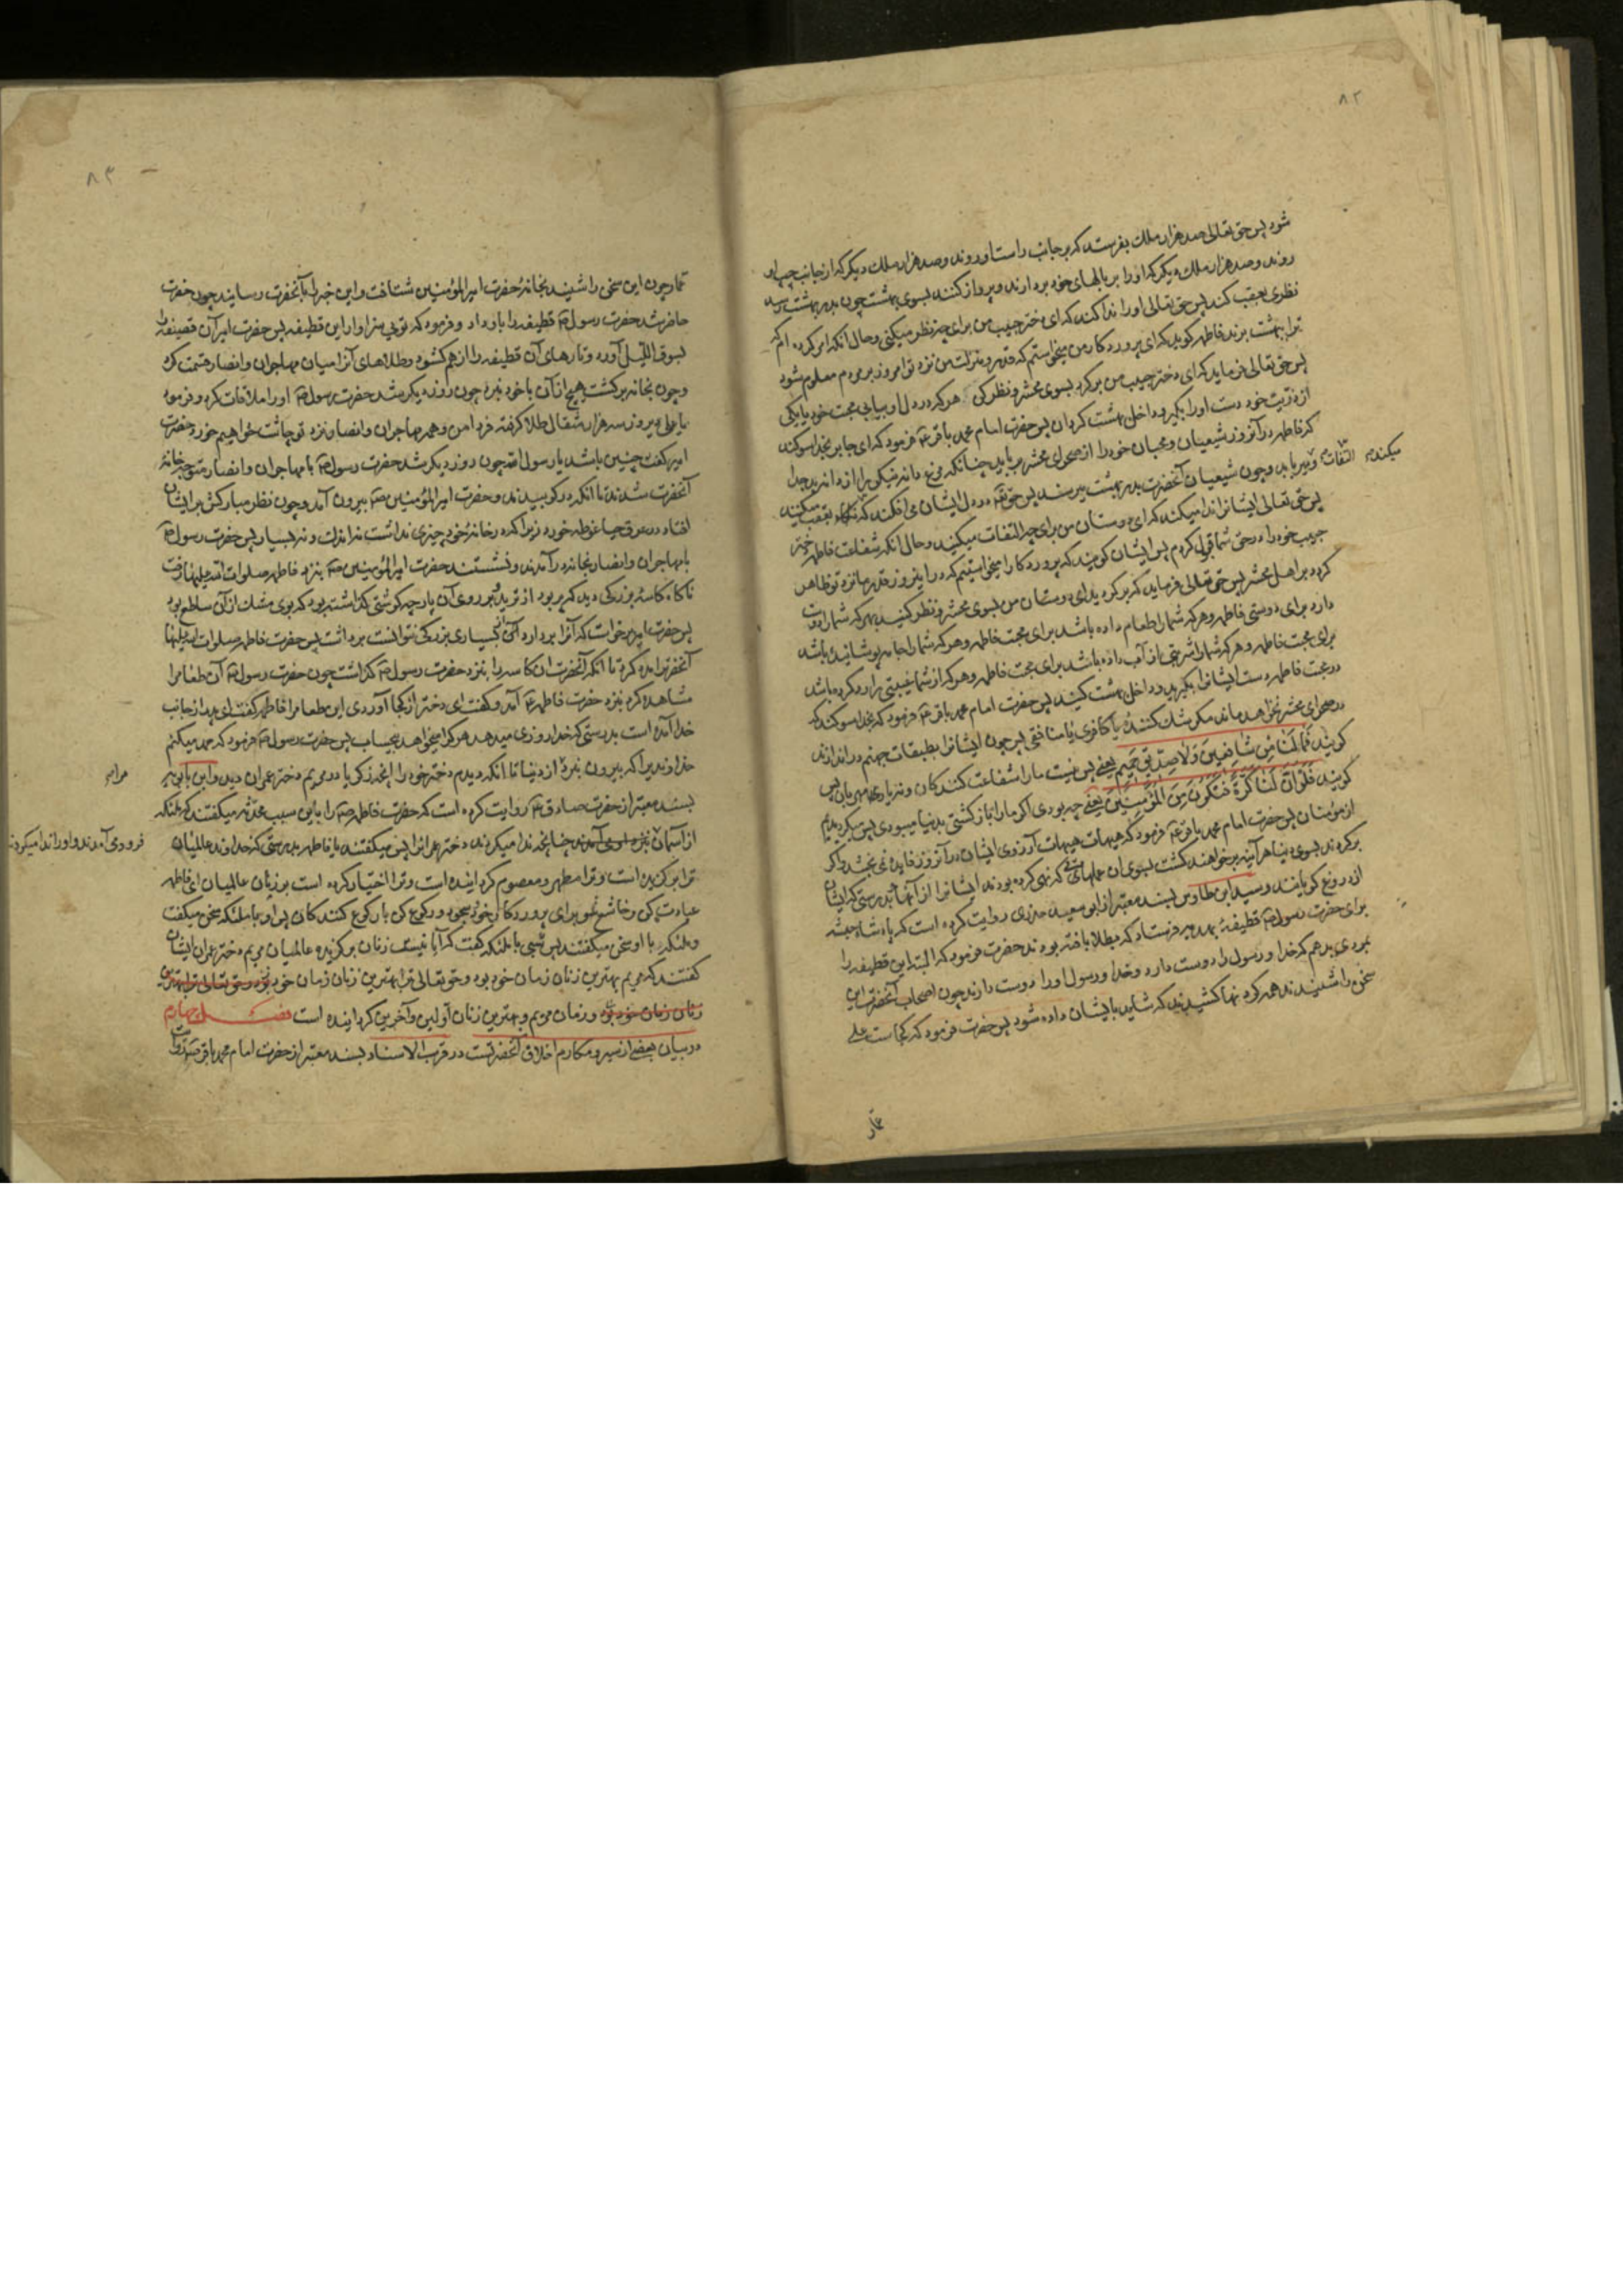 ٨٢
شود پس حق تعالی صد هزار ملک بفرستد که بر جانب راست او روند و صد هزار ملک دیگر که از جانب چپ او
روند و صد هزار ملک دیگر که او را بر بالهای خود بردارند و پرواز کنند بسوی بهشت چون بدر بهشت رسد
نظری بعقب کند پس حق تعالی او را ندا کند که ای دختر حبیب من برای چه نظر میکنی و حال آنکه امر کرده ام که
ترا ببهشت برند فاطمه کوید که ای پروردکار من میخواستم که قدر و منزلت من نزد تو امروز بر مردم معلوم شود
پس حق تعالی فرماید که ای دختر حبیب من برکرد بسوی محشر و نظر کن هر که در دل او بیابی محبت خود یا یکی
از ذریت خود دست او را بکیر و داخل بهشت کردان پس حضرت امام محمد باقر ع فرمود که ای جابر بخدا سوکند
که فاطمه در آنروز شیعیان و محبان خود را از صحرای محشر میرباید چنانکه مرغ دانه نیکی را از دانه بد جدا
میکند و میرباید و چون شیعیان آنحضرت بدر بهشت میرسند پس حق تعم در دل ایشان می افکند که بعقب میکنند
التفات
پس حق تعالی ایشانرا ندا میکند که ای دوستان من برای چه التفات میکنید و حال آنکه شفاعت فاطمه دختر
حبیب خود را در حق شما قبول کردم پس ایشان کویند که پروردکارا میخواستیم که در اینروز قدر ما نزد تو ظاهر
کردد بر اهل محشر پس حق تعالی فرماید که برکردید ای دوستان من بسوی محشر و نظر کنید بهر که شما را دوست
دارد برای دوستی فاطمه و هر که شما را طعام داده باشد برای محبت فاطمه و هر که شما را جامه پوشانیده باشد
برای محبت فاطمه و هر که شما را شربتی از آب داده باشد برای محبت فاطمه و هر که از شما غیبتی را رد کرده باشد
در محبت فاطمه دست ایشانرا بکیرید و داخل بهشت کنید پس حضرت امام محمد باقر ع فرمود که بخدا سوکند که
در صحرای محشر نخواهد ماند مکر شک کننده یا کافری یا منافقی پس چون ایشانرا بطبقات جهنم در اندازند
کویند فَمٰا لَنٰا مِنْ شٰافِعینَ وَلٰا صِدّیقٍ حَمیم یعنی پس نیست ما را شفاعت کنندکان و نه یاری مهربان پس
کویند فَلَوْ اَنَّ لَنٰا کَرَّةً فَنَکُونَ مِنَ المُؤْمِنینَ یعنی چه بودی اکر ما را بازکشتی بدنیا میبودی پس میکردیدیم
از مومنان پس حضرت امام محمد باقر ع فرمود که هیهات هیهات آرزوی ایشان در آنروز فایده نمی بخشد و اکر
برکردند بسوی دنیا هر آینه برخواهند کشت بسوی آن عملهائی که نهی کرده بودند ایشانرا از آنها بدرستی که ایشان
از دروغ کویانند و سید ابن طاوس بسند معتبر از ابو سعید خدری روایت کرده است که پادشاه حبشه
برای حضرت رسول ص قطیفهٔ بهدیه فرستاد که بطلا بافته بودند حضرت فرمود که البته این قطیفه را
بمردی بدهم که خدا و رسول را دوست دارد و خدا و رسول او را دوست دارند چون اصحاب آنحضرت این
سخن را شنیدند همه کردنها کشیدند که شاید بایشان داده شود پس حضرت فرمود که کجاست علی
عمار
٨٣
عمار چون این سخن را شنید بخانهٔ حضرت امیرالمؤمنین شتافت و این خبر را بآنحضرت رسانید چون حضرت
حاضر شد حضرت رسول ص قطیفه را باو داد و فرمود که توئی سزاوار این قطیفه پس حضرت امیر آن قطیفه را
بسوق اللیل آورد و تارهای آن قطیفه را از هم کشود و طلاهای آنرا میان مهاجران و انصار قسمت کرد
و چون بخانه برکشت هیچ از آن با خود نبرد چون روز دیکر شد حضرت رسول ص او را ملاقات کرد و فرمود
یا علی دیروز سه هزار مثقال طلا کرفتهٔ فردا من و همه مهاجران و انصار نزد تو چاشت خواهیم خورد حضرت
امیر کفت چنین باشد یا رسول الله چون روز دیکر شد حضرت رسول ص با مهاجران و انصار متوجه خانهٔ
آنحضرت شدند تا آنکه در کوبیدند و حضرت امیرالمؤمنین ص بیرون آمد و چون نظر مبارکش بر ایشان
افتاد در عرق حیا غوطه خورد زیرا که در خانهٔ خود چیزی نداشت نه اندک و نه بسیار پس حضرت رسول ص
با مهاجران و انصار بخانه در آمدند و نشستند حضرت امیرالمؤمنین ص بنزد فاطمه صلوات الله علیهما رفت
ناکاه کاسهٔ بزرکی دید که پر بود از ترید و بر روی آن پارچه کوشتی کذاشته بود که بوی مشک از آن ساطع بود
پس حضرت امیر خواست که آنرا بردارد از بسیاری بزرکی نتوانست برداشت پس حضرت فاطمه صلوات الله علیها
آنحضرترا مدد کرد تا آنکه آنحضرت آن کاسه را بنزد حضرت رسول ص کذاشت چون حضرت رسول ص آن طعام را
مشاهده کرد بنزد حضرت فاطمه ع آمد و کفت ای دختر از کجا آوردی این طعام را فاطمه کفت ای پدر از جانب
خدا آمده است بدرستی که خدا روزی میدهد هر که را میخواهد بیحساب پس حضرت رسول ص فرمود که حمد میکنم
خداوندیرا که بیرون نبرد مرا از دنیا تا آنکه دیدم دختر خود را آنچه زکریا در مریم دختر عمران دید و ابن بابویه
بسند معتبر از حضرت صادق ع روایت کرده است که حضرت فاطمه ص را باین سبب محدثه میکفتند که ملئکه
از آسمان فرود می آمدند و او را ندا میکردند چنانچه ندا میکردند دختر عمرانرا پس میکفتند یا فاطمه بدرستی که خداوند عالمیان
ترا برکزیده است و ترا مطهر و معصوم کردانیده است و ترا اختیار کرده است بر زنان عالمیان ای فاطمه
عبادت کن و خاشع شو برای پروردکار خود و سجود و رکوع کن با رکوع کنندکان پس او با ملئکه سخن میکفت
و ملئکه با او سخن میکفتند پس شبی با ملئکه کفت که آیا نیست زنان برکزیده عالمیان مریم دختر عمران ایشان
کفتند که مریم بهترین زنان زمان خود بود و حق تعالی ترا بهترین زنان زمان خود
و زمان مریم و بهترین زنان اولین و آخرین کردانیده است فصل چهارم
در بیان بعضی از سیر و مکارم اخلاق آنحضرتست در قرب الاسناد بسند معتبر از حضرت امام محمد باقر ص روایت